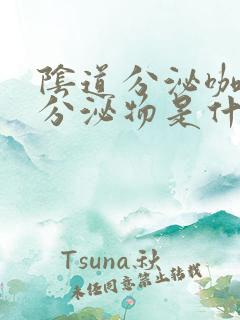 陰道分泌咖
分泌物是什
Tsuna.秋
未任同意禁止转载